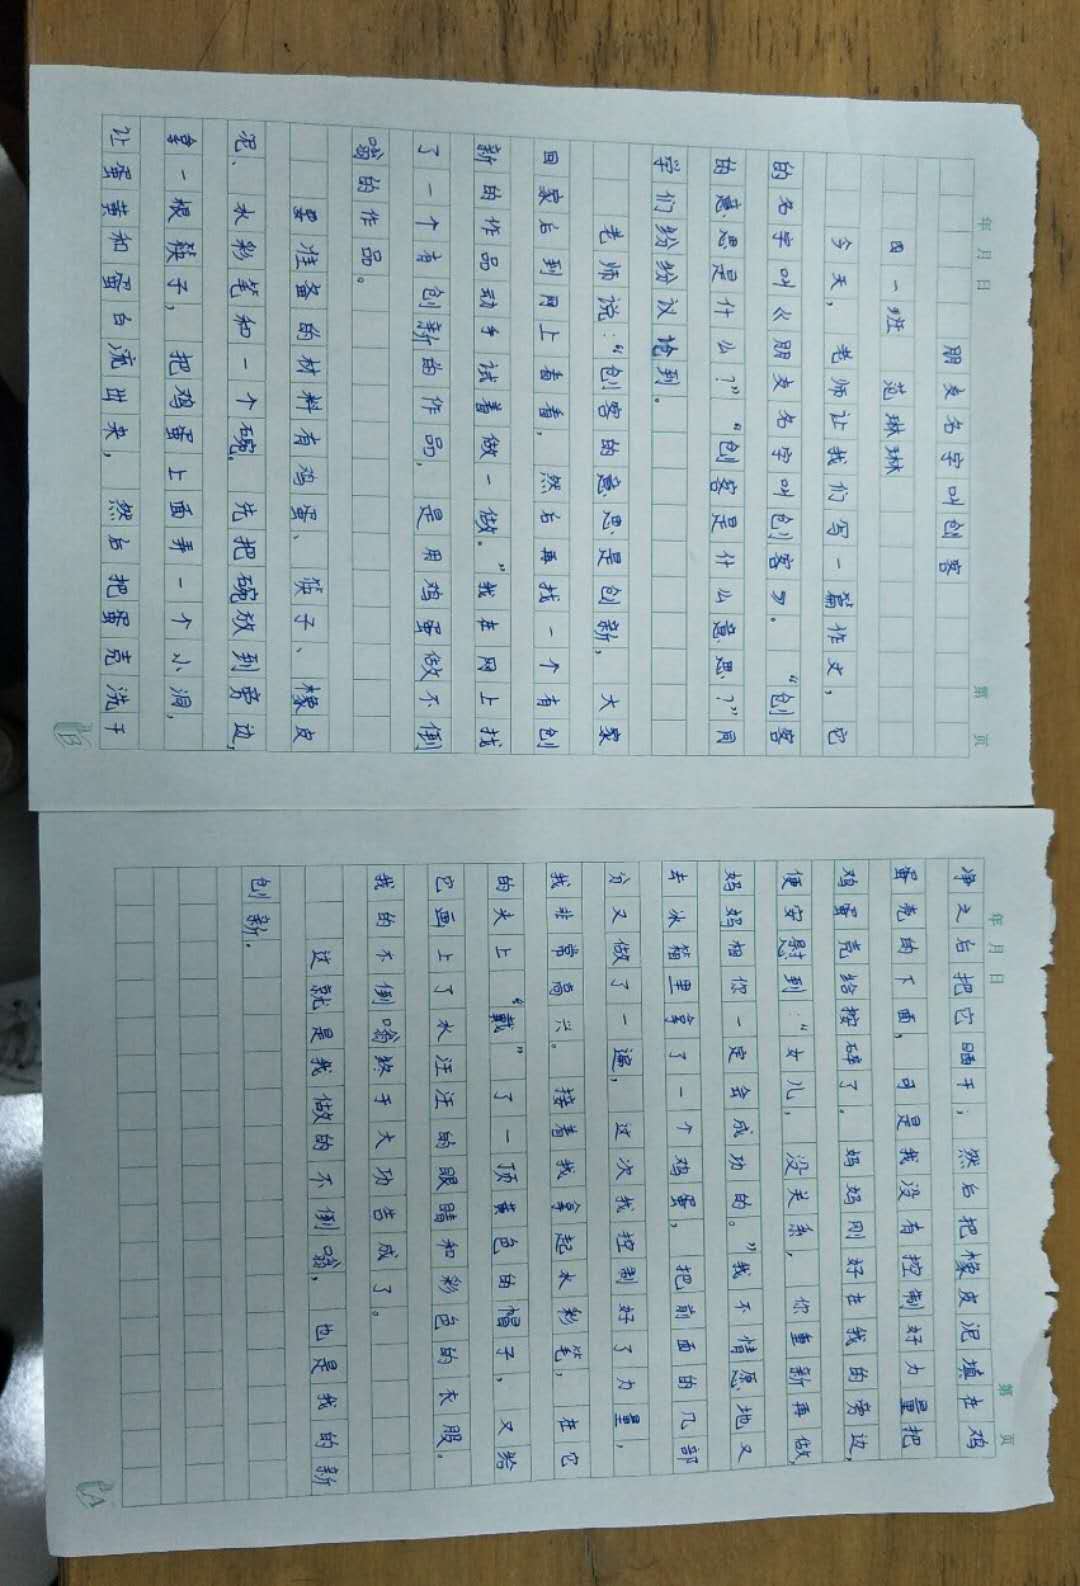 年 月 日
第 页
朋友名字叫创客
四一班 范琳琳
今天，老师让我们写一篇作文，它
的名字叫《朋友名字叫创客》。“创客
的意思是什么？”“创客是什么意思？”同
学们纷纷议论到。
老师说：“创客的意思是创新，大家
回家后到网上看看，然后再找一个有创
新的作品动手试着做一做。”我在网上找
了一个有创新的作品，是用鸡蛋做不倒
翁的作品。
要准备的材料有鸡蛋、筷子、橡皮
泥、水彩笔和一个碗。先把碗放到旁边，
拿一根筷子，把鸡蛋上面弄一个小洞，
让蛋黄和蛋白流出来，然后把蛋壳洗干
B
年 月 日
第 页
净之后把它晒干；然后把橡皮泥填在鸡
蛋壳的下面，可是我没有控制好力量把
鸡蛋壳给按碎了。妈妈刚好在我的旁边，
便安慰到：“女儿，没关系，你重新再做，
妈妈相你一定会成功的。”我不情愿地又
去冰箱里拿了一个鸡蛋，把前面的几部
分又做了一遍，这次我控制好了力量，
我非常高兴。接着我拿起水彩笔，在它
的头上“戴”了一顶黄色的帽子，又给
它画上了水汪汪的眼睛和彩色的衣服。
我的不倒翁终于大功告成了。
这就是我做的不倒翁，也是我的新
创新。
A